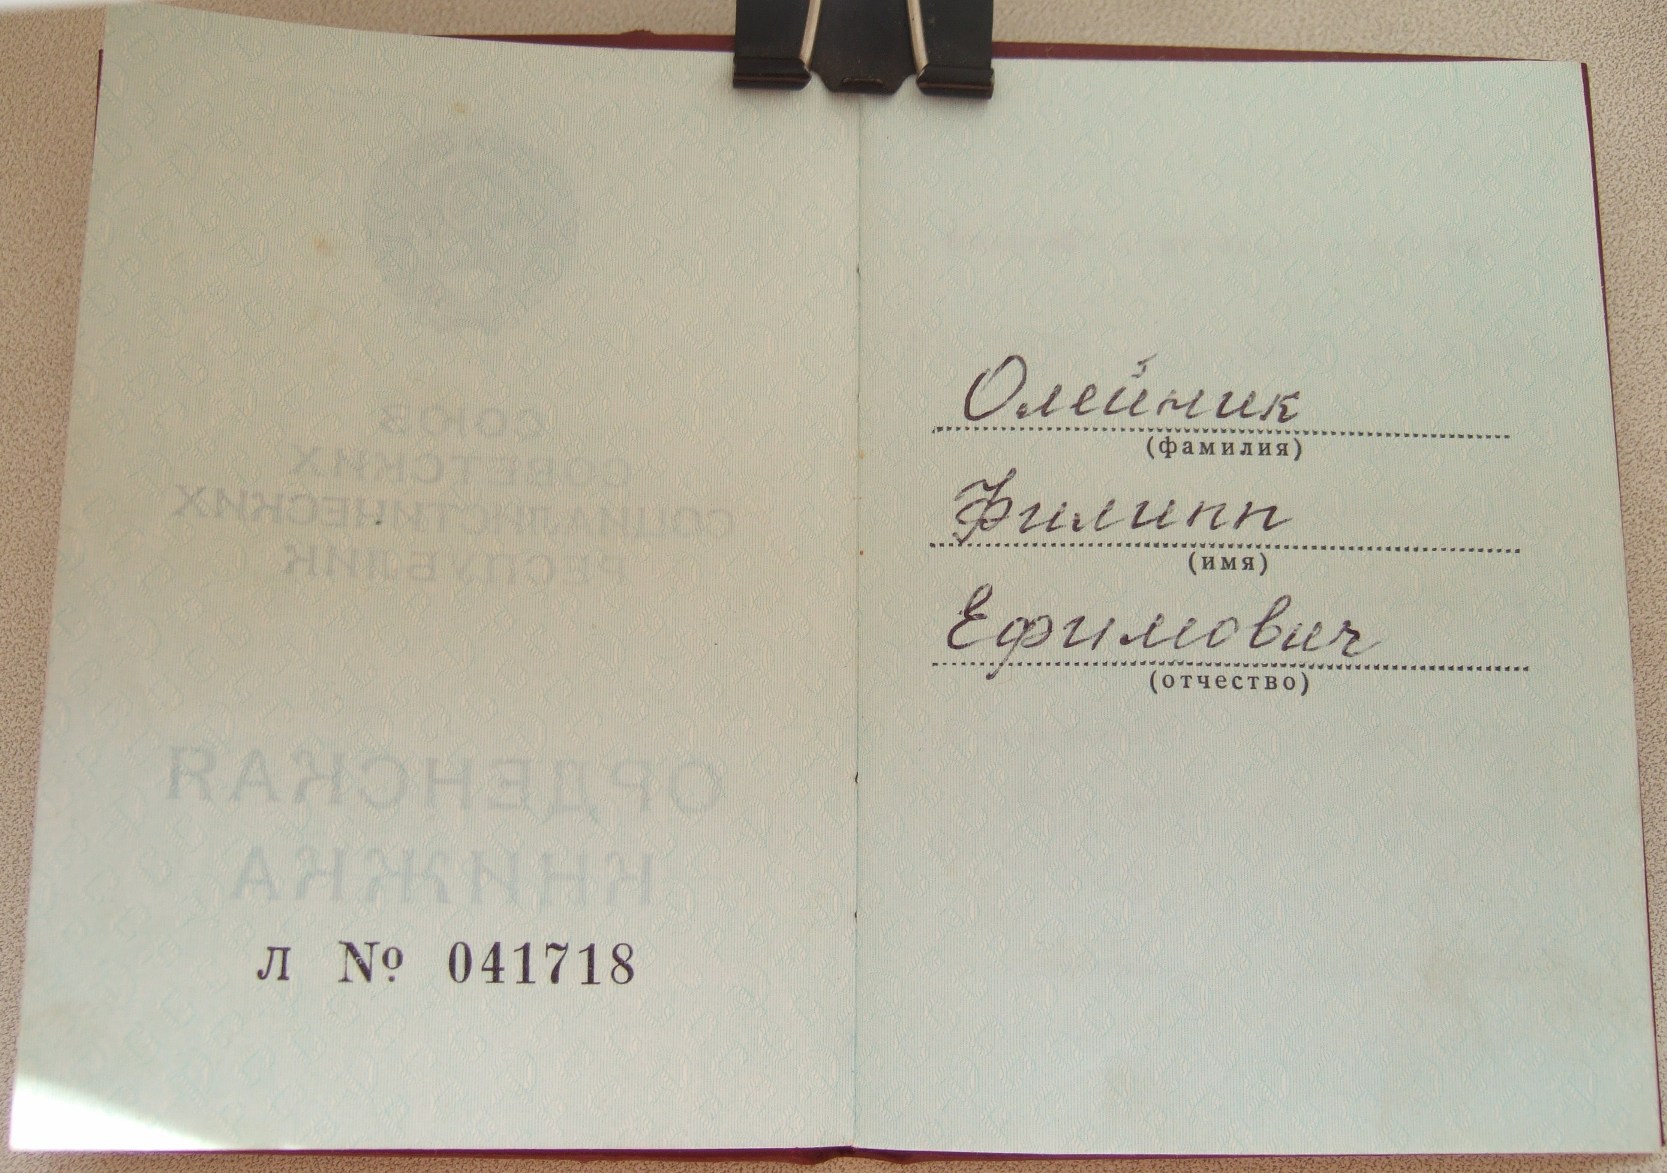 СОЮЗ
СОВЕТСКИХ
СОЦИАЛИСТИЧЕСКИХ
РЕСПУБЛИК
ОРДЕНСКАЯ
КНИЖКА
Л № 041718
Олейник
(фамилия)
Филипп
(имя)
Ефимович
(отчество)